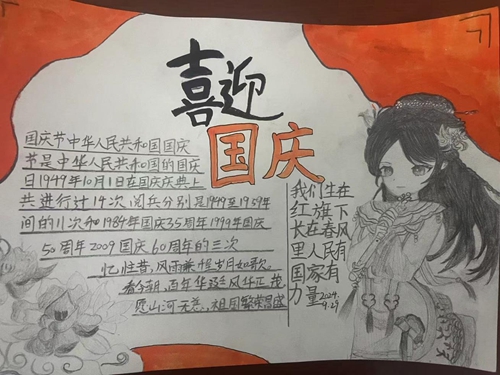 喜迎
国庆
国庆节中华人民共和国国庆
节是中华人民共和国的国庆
日1949年10月1日在国庆庆典上
共进行计14次阅兵分别是1949至1959年
间的11次和1984年国庆35周年1999年国庆
50周年2009国庆60周年的三次
忆往昔,风雨兼程岁月如歌
看今朝,百年华诞风华正茂
愿山河无恙,祖国繁荣昌盛
我们生在
红旗下
长在春风
里人民有
国家有
力量
2024
9.29